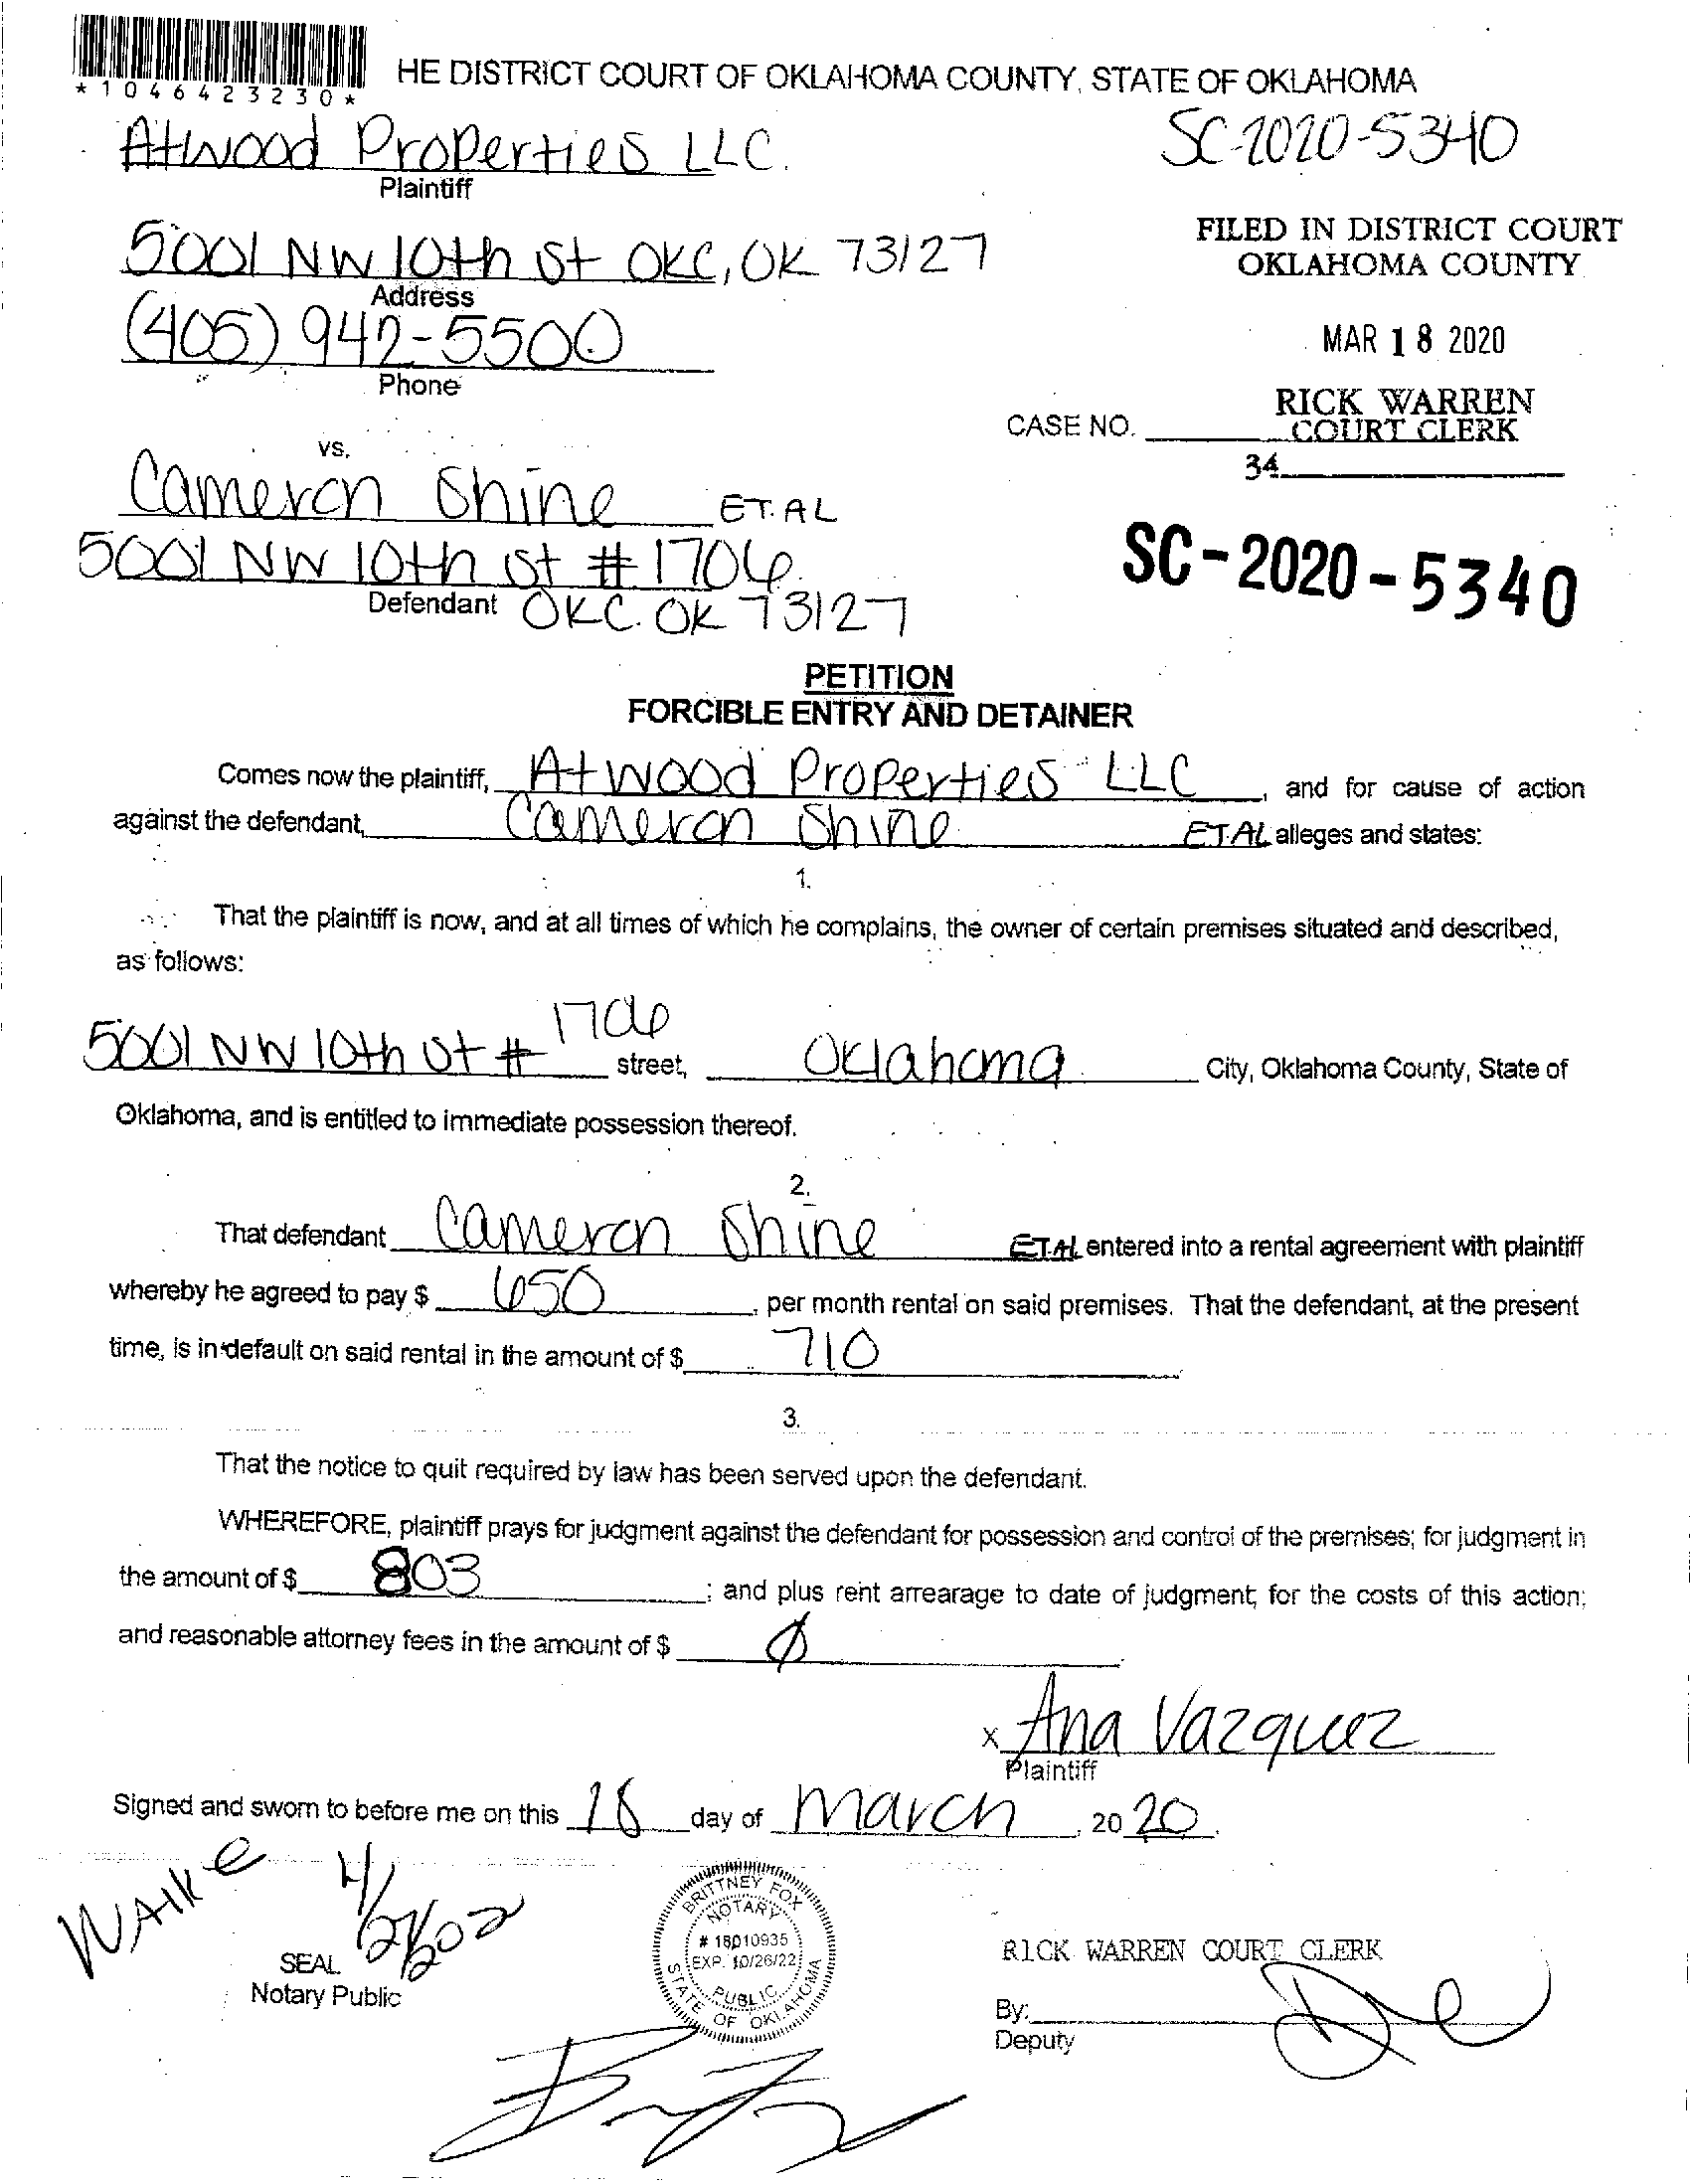 *1046423230*
HE DISTRICT COURT OF OKLAHOMA COUNTY, STATE OF OKLAHOMA
Atwood Properties LLC.
SC-2020-5340
Plaintiff
5001 NW 10th St OKC, OK 73127
FILED IN DISTRICT COURT
OKLAHOMA COUNTY
Address
(405) 942-5500
MAR 18 2020
Phone
RICK WARREN
CASE NO.
COURT CLERK
vs.
34
Cameron Shine ET.AL
5001 NW 10th St # 1706
SC-2020-5340
Defendant OKC. OK 73127
PETITION
FORCIBLE ENTRY AND DETAINER
Comes now the plaintiff, Atwood Properties LLC, and for cause of action
against the defendant, Cameron Shine ET.AL alleges and states:
1.
That the plaintiff is now, and at all times of which he complains, the owner of certain premises situated and described,
as follows:
5001 NW 10th St # 1706 street, Oklahoma City, Oklahoma County, State of
Oklahoma, and is entitled to immediate possession thereof.
2.
That defendant Cameron Shine ET.AL entered into a rental agreement with plaintiff
whereby he agreed to pay $ 650, per month rental on said premises. That the defendant, at the present
time, is in default on said rental in the amount of $ 710
3.
That the notice to quit required by law has been served upon the defendant.
WHEREFORE, plaintiff prays for judgment against the defendant for possession and control of the premises; for judgment in
the amount of $ 803; and plus rent arrearage to date of judgment; for the costs of this action;
and reasonable attorney fees in the amount of $ Ø
x Ana Vazquez
Plaintiff
Signed and sworn to before me on this 18 day of March, 2020.
SEAL
Notary Public
BRITTNEY FOX
NOTARY
# 18010935
EXP. 10/26/22
PUBLIC
STATE OF OKLAHOMA
RICK WARREN COURT CLERK
By:
Deputy